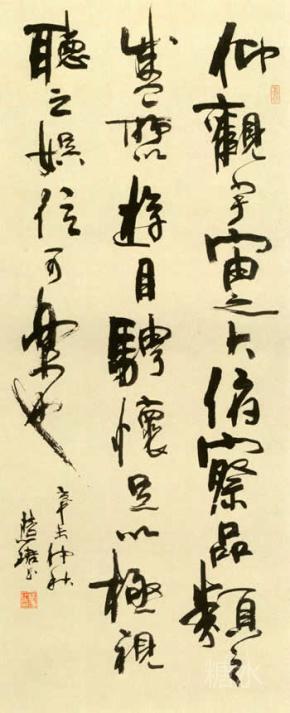 仰觀宇宙之大俯察品類之
盛所以遊目騁懷足以極視
聽之娛信可樂也
辛未仲秋
糖水